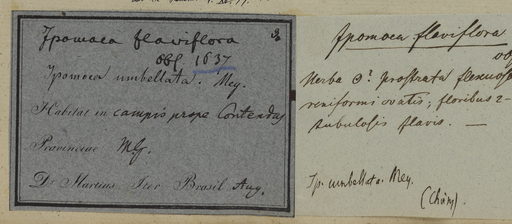 Ipomoea flaviflora
obf. 1637
Ipomoea umbellata. Mey.
Habitat in campis prope Contendas
Provinciae M.G.
Dr. Martius Iter Brasil Aug.
Ipomoea flaviflora
Herba prostrata flexuosa
reniformi ovatis; floribus 2-
tubulosis flavis. —
Ip. umbellata. Mey.
(Choisy)